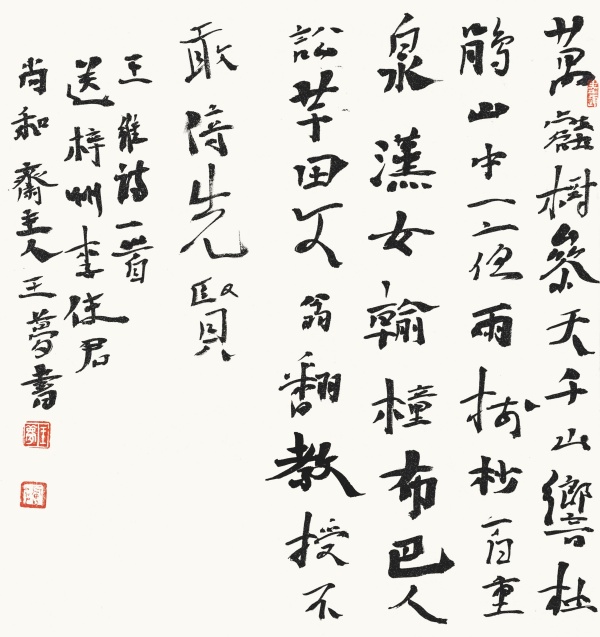 萬壑樹參天千山響杜
鵑山中一夜雨樹杪百重
泉漢女輸橦布巴人
訟芋田文翁翻教授不
敢倚先賢
王維詩一首
送梓州李使君
尚和齋主人王夢書